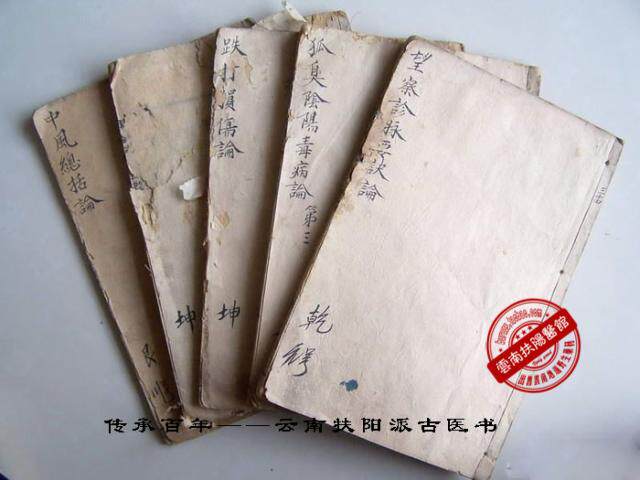 中風總括論
艮
坤
跌打損傷論
坤
狐臭陰陽毒病論 第三
望察診脉要訣論
乾
雲南扶陽醫館
传承百年——云南扶阳派古医书